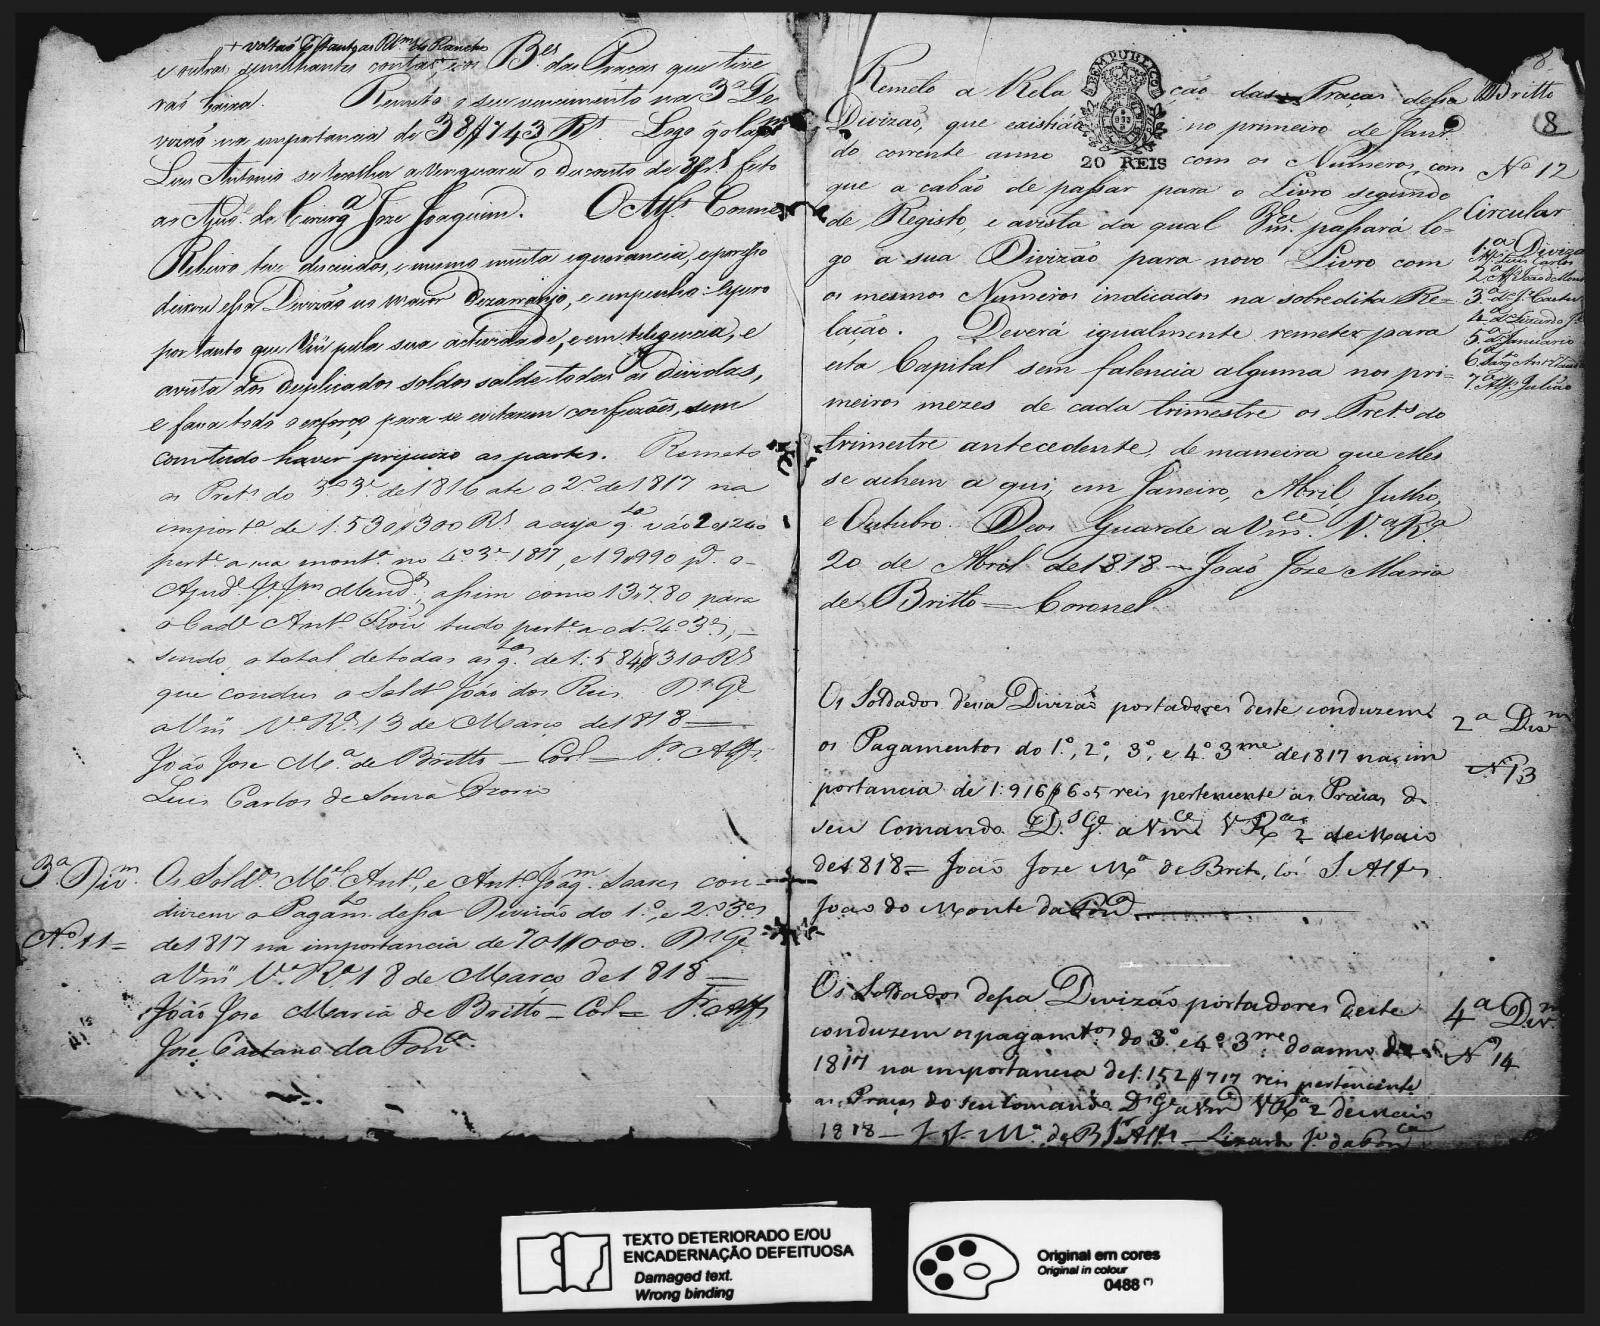 e outras semilhantes contas, e os B.es das Praças que tive
rão baixa. Remeto o seu vencimento na 3ª De
vizão na importancia de 38$743 Rs Logo q̃ o
Luis Antonio se recolher averiguará o disconto de feito
ao Ajud. do Cirurgª Joze Joaquim. O Alfs. Cosme
Ribeiro teve descuidos, e mesmo muita ignorancia, e por isso
deixou essa Divizão no maior dezarranjo, e empenho: Espero
por tanto que Vm pela sua actividade, e emteligencia, e
avista dos duplicados soldos salde todas as dividas,
e fará todo o esforço para se evitarem confuzões, sem
comtudo haver prejuizo as partes. Remeto
os Prets do 3º 3e. de 1816 ate o 2º de 1817 na
import.a de 1:530$300 Rs a cuja q.ta vão
pert.e a sua mont.a no 4º 3e 1817, e 19$990 p.a o
Ajud.e Mend.es, assim como 13$780 para
o Cad.e Ant.o tudo pert.e ao d.o 4º 3e,
sendo o total de todas as q.tas de 1:584$310 Rs
que conduz o Sold.o João dos Reis. D.s G.e
a Vm Vª Rª 13 de Março de 1818 =
João Joze M.a de Britto = Cor.l = Sr. Alfs.
Luis Carlos de Souza Ozorio
3ª Div.m
Nº 11 =
Os Sold.os M.el Ant.o, e Ant.o Joaq.m Soares con-
duzem o Pagam.to dessa Divizão do 1º, e 2º 3.es
de 1817 na importancia de 701$000. D.s G.e
a Vm Vª Rª 18 de Março de 1818 =
João Joze Maria de Britto = Cor.l = Sr. Alfs
Joze Caetano da Fon.ca
8
Britto
8
Remeto a Rela ção das Praças dessa
Divizão, que existião no primeiro de Janr.o
do corrente anno com os Numeros, com
que acabão de passar para o Livro segundo
de Registo, e avista da qual Vm.ce passará lo-
go a sua Divizão para novo Livro com
os mesmos Numeros indicados na sobredita Re-
lação. Deverá igualmente remeter para
esta Capital sem falencia alguma nos pri-
meiros mezes de cada trimestre os Prets do
trimestre antecedente, de maneira que elles
se achem aqui, em Janeiro, Abril, Julho,
e Outubro. Deos Guarde a Vm.ce Vª Rª
20 de Abril de 1818 — João Joze Maria
de Britto = Coronel
REPUBLICO
20 REIS
Nº 12
Circular
1ª Diviza
Alfs. Luis Carlos
2ª Alfs João do Mon
3ª d.o J.e Caetan
4ª d.o Lizardo
5ª d.o Januario
6ª
7ª Alfs. Julião
Os Soldados dessa Divizão portadores deste conduzem
os Pagamentos do 1º, 2º, 3º, e 4º 3.me de 1817 na im
portancia de 1:916$605 reis pertencente as Praças do
seu Comando D.s G.e a Vm.ce Vª Rª 2 de Maio
de 1818 = João Joze M.a de Brito, Co.l S Alfes
João do Monte da Fon.ca
2ª Div.m
Nº 13
Os Soldados dessa Divizão portadores deste
conduzem os pagamt.os do 3º e 4º 3.me do anno de
1817 na importancia de 1:152$717 reis pertencente
as Praças do seu Comando D.s G.e a Vm.ce Vª Rª 2 de Maio
1818 — J. J. M.a de B Sr Alfs — Lizardo J.e da Fon.ca
4ª Div.m
Nº 14
TEXTO DETERIORADO E/OU
ENCADERNAÇÃO DEFEITUOSA
Damaged text.
Wrong binding
Original em cores
Original in colour
0488 (*)